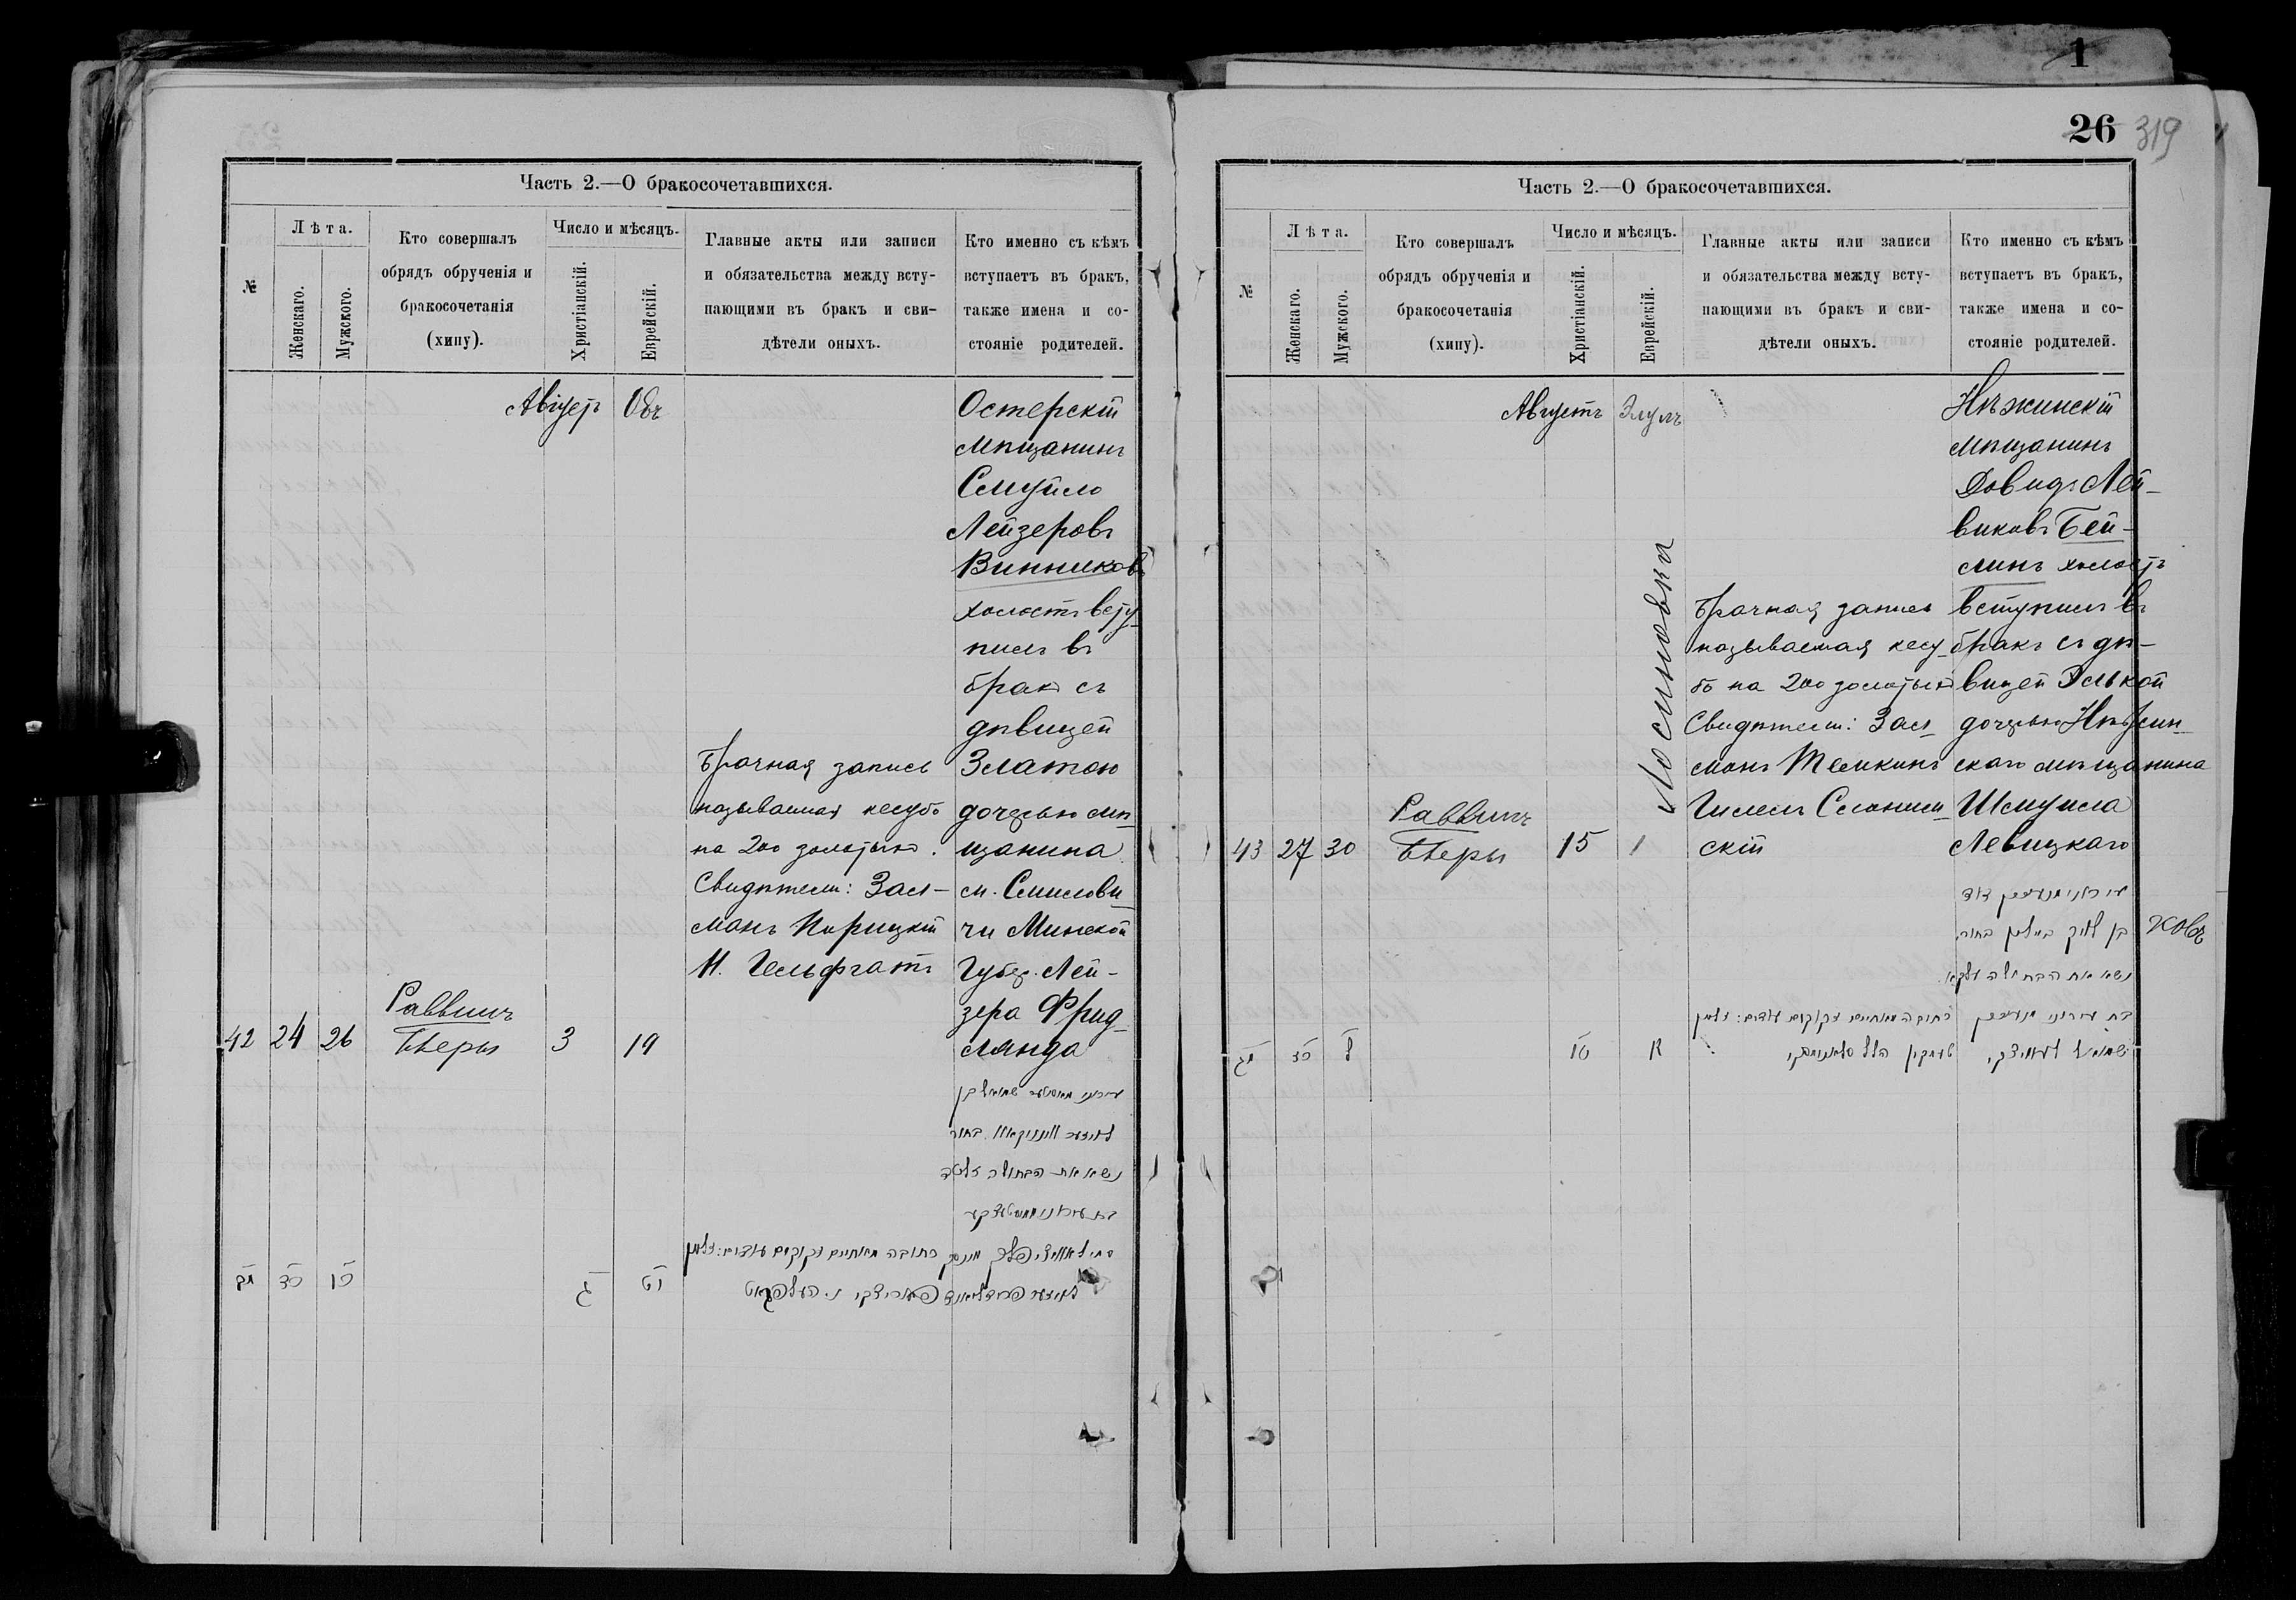 1
26 319
Часть 2.—О бракосочетавшихся.
№
Лѣта.
Женскаго.
Мужскаго.
Кто совершалъ
обрядъ обрученія и
бракосочетанія
(хипу).
Число и мѣсяцъ.
Христіанскій.
Еврейскій.
Главные акты или записи
и обязательства между всту-
пающими въ бракъ и сви-
дѣтели оныхъ.
Кто именно съ кѣмъ
вступаетъ въ бракъ,
также имена и со-
стояніе родителей.
Августъ
Остерскій
мѣщанинъ
Смуйло
Лейзеровъ
Винниковъ
холостъ всту-
пилъ въ
бракъ съ
дѣвицей
Златою
дочерью мѣ-
щанина
м. Смилови-
чи Минской
Губер. Лей-
зера Фрид-
лянда
Брачная запись
называемая кесубо
на 200 золотыхъ.
Свидѣтели: Зал-
манъ Порицкій
Н. Гельфгатъ
42 24 26
Раввинъ
3 19
מב כד כו
ג יט
כתובה מאתיים זקוקים עדים: זלמן
Часть 2.—О бракосочетавшихся.
№
Лѣта.
Женскаго.
Мужского.
Кто совершалъ
обрядъ обрученія и
бракосочетанія
(хипу).
Число и мѣсяцъ.
Христіанскій.
Еврейскій.
Главные акты или записи
и обязательства между всту-
пающими въ бракъ и сви-
дѣтели оныхъ.
Кто именно съ кѣмъ
вступаетъ въ бракъ,
также имена и со-
стояніе родителей.
Августъ Элулъ
Нѣжинскій
мѣщанинъ
Довидъ Лей-
виковъ Бей-
линъ холостъ
вступилъ въ
бракъ съ дѣ-
вицей Элькой
дочерью Нѣжин-
скаго мѣщанина
Шмуила
Левицкаго
Лосиновка
Брачная запись
называемая кесу-
бо на 200 золотыхъ
Свидѣтели: Зал-
манъ Темкинъ
Гилель Слоним-
скій
43 27 30
Раввинъ
15 1
בן לייב ביילין בחור
נשא את הבתולה עלקא
כתובה מאתיים זקוקים עדים: זלמן
טעמקין הלל סלאנימסקי
שמואל לעוויצקי
מג כז ל
טו א